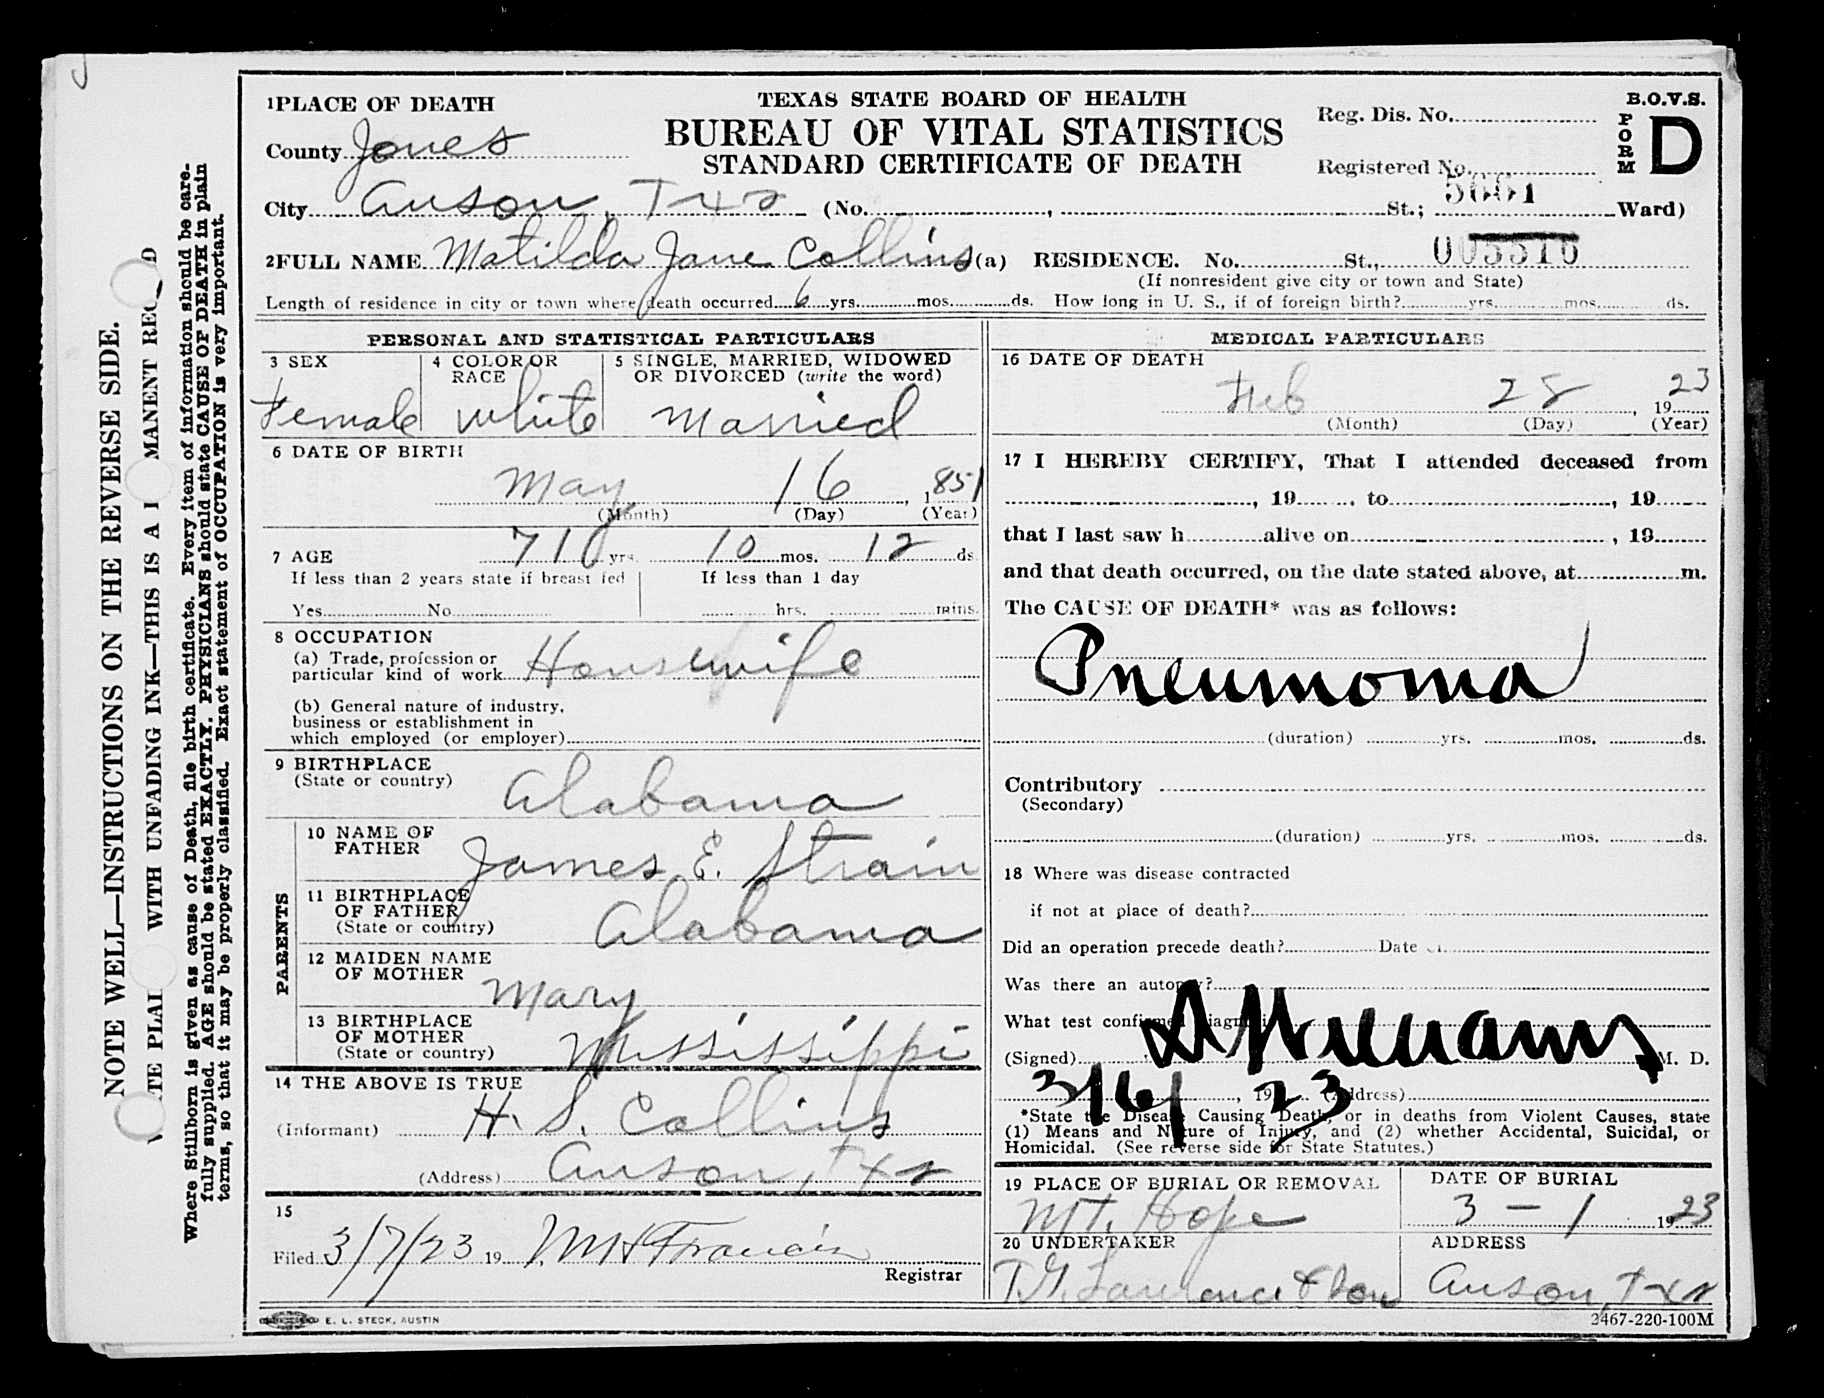 1 PLACE OF DEATH
TEXAS STATE BOARD OF HEALTH
BUREAU OF VITAL STATISTICS
STANDARD CERTIFICATE OF DEATH
Reg. Dis. No.
Registered No.
B.O.V.S.
FORM D
County Jones
City Anson, Txs (No. , St.; Ward)
2 FULL NAME Matilda Jane Collins (a) RESIDENCE. No. St.,
(If nonresident give city or town and State)
Length of residence in city or town where death occurred 6 yrs. mos. ds. How long in U. S., if of foreign birth? yrs. mos. ds.
PERSONAL AND STATISTICAL PARTICULARS
3 SEX
Female
4 COLOR OR RACE
White
5 SINGLE, MARRIED, WIDOWED
OR DIVORCED (write the word)
Married
6 DATE OF BIRTH
May 16, 1851
(Month) (Day) (Year)
7 AGE 71 yrs. 10 mos. 12 ds.
If less than 2 years state if breast fed
Yes No
If less than 1 day
hrs. mins.
8 OCCUPATION
(a) Trade, profession or
particular kind of work Housewife
(b) General nature of industry,
business or establishment in
which employed (or employer)
9 BIRTHPLACE
(State or country) Alabama
PARENTS
10 NAME OF
FATHER James E. Strain
11 BIRTHPLACE
OF FATHER
(State or country) Alabama
12 MAIDEN NAME
OF MOTHER Mary
13 BIRTHPLACE
OF MOTHER
(State or country) Mississippi
14 THE ABOVE IS TRUE
(Informant) H. S. Collins
(Address) Anson, Txs
15
Filed 3/7/23 19 Francis
Registrar
MEDICAL PARTICULARS
16 DATE OF DEATH
Feb 28, 1923
(Month) (Day) (Year)
17 I HEREBY CERTIFY, That I attended deceased from
, 19 , to , 19
that I last saw h alive on , 19
and that death occurred, on the date stated above, at m.
The CAUSE OF DEATH* was as follows:
Pneumonia
(duration) yrs. mos. ds.
Contributory
(Secondary)
(duration) yrs. mos. ds.
18 Where was disease contracted
if not at place of death?
Did an operation precede death? Date of
Was there an autopsy?
What test confirmed diagnosis
(Signed) Williams M. D.
3/6/, 1923 (Address)
*State the Disease Causing Death, or in deaths from Violent Causes, state
(1) Means and Nature of Injury, and (2) whether Accidental, Suicidal, or
Homicidal. (See reverse side for State Statutes.)
19 PLACE OF BURIAL OR REMOVAL
Mt. Hope
DATE OF BURIAL
3 - 1 1923
20 UNDERTAKER
Lawrence & Son
ADDRESS
Anson, Txs
E. L. STECK, AUSTIN
2467-220-100M
NOTE WELL—INSTRUCTIONS ON THE REVERSE SIDE.
WITH UNFADING INK—THIS IS A MANENT
Where Stillborn is given as cause of Death, file birth certificate. Every item of information should be care-
fully supplied. AGE should be stated EXACTLY. PHYSICIANS should state CAUSE OF DEATH in plain
terms, so that it may be properly classified. Exact statement of OCCUPATION is very important.